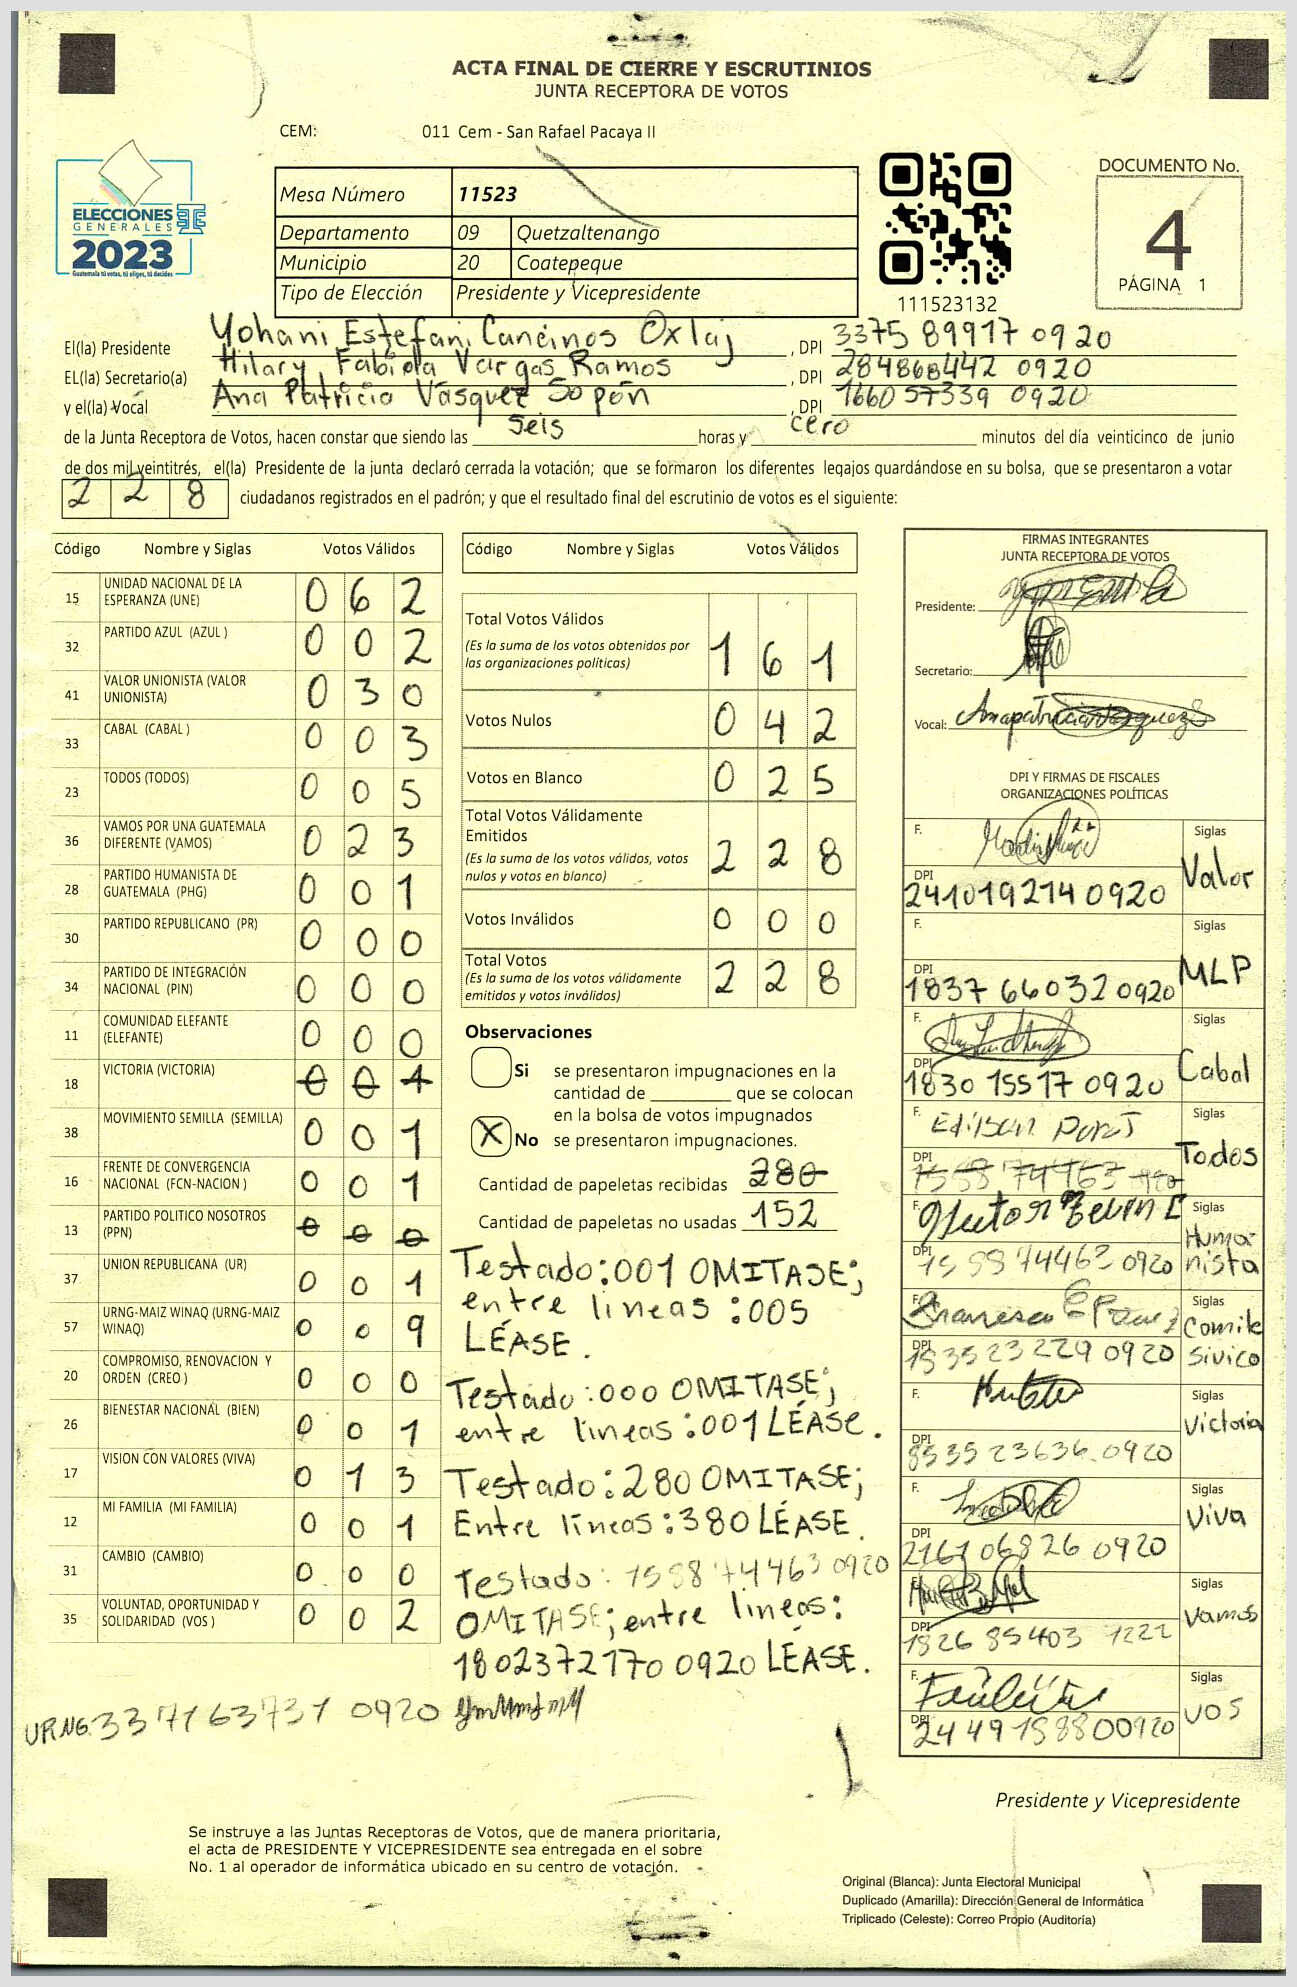 ACTA FINAL DE CIERRE Y ESCRUTINIOS
JUNTA RECEPTORA DE VOTOS
CEM: 011 Cem - San Rafael Pacaya II
ELECCIONES
GENERALES
2023
Guatemala tú votas, tú eliges, tú decides
Mesa Número 11523
Departamento 09 Quetzaltenango
Municipio 20 Coatepeque
Tipo de Elección Presidente y Vicepresidente
111523132
DOCUMENTO No.
4
PÁGINA 1
El(la) Presidente Yohani Estefani Cancinos Oxlaj , DPI 3375 89917 0920
EL(la) Secretario(a) Hilary Fabiola Vargas Ramos , DPI 284868442 0920
y el(la) Vocal Ana Patricia Vásquez Sopón , DPI 1660 57339 0920
de la Junta Receptora de Votos, hacen constar que siendo las seis horas y cero minutos del día veinticinco de junio
de dos mil veintitrés, el(la) Presidente de la junta declaró cerrada la votación; que se formaron los diferentes legajos quardándose en su bolsa, que se presentaron a votar
228 ciudadanos registrados en el padrón; y que el resultado final del escrutinio de votos es el siguiente:
Código Nombre y Siglas Votos Válidos
15 UNIDAD NACIONAL DE LA ESPERANZA (UNE) 062
32 PARTIDO AZUL (AZUL ) 002
41 VALOR UNIONISTA (VALOR UNIONISTA) 030
33 CABAL (CABAL ) 003
23 TODOS (TODOS) 005
36 VAMOS POR UNA GUATEMALA DIFERENTE (VAMOS) 023
28 PARTIDO HUMANISTA DE GUATEMALA (PHG) 001
30 PARTIDO REPUBLICANO (PR) 000
34 PARTIDO DE INTEGRACIÓN NACIONAL (PIN) 000
11 COMUNIDAD ELEFANTE (ELEFANTE) 000
18 VICTORIA (VICTORIA) 001
38 MOVIMIENTO SEMILLA (SEMILLA) 001
16 FRENTE DE CONVERGENCIA NACIONAL (FCN-NACION ) 001
13 PARTIDO POLITICO NOSOTROS (PPN) 000
37 UNION REPUBLICANA (UR) 001
57 URNG-MAIZ WINAQ (URNG-MAIZ WINAQ) 009
20 COMPROMISO, RENOVACION Y ORDEN (CREO ) 000
26 BIENESTAR NACIONAL (BIEN) 001
17 VISION CON VALORES (VIVA) 013
12 MI FAMILIA (MI FAMILIA) 001
31 CAMBIO (CAMBIO) 000
35 VOLUNTAD, OPORTUNIDAD Y SOLIDARIDAD (VOS ) 002
URNG 33 7163731 0920
Código Nombre y Siglas Votos Válidos
Total Votos Válidos 161
(Es la suma de los votos obtenidos por
las organizaciones políticas)
Votos Nulos 042
Votos en Blanco 025
Total Votos Válidamente
Emitidos 228
(Es la suma de los votos válidos, votos
nulos y votos en blanco)
Votos Inválidos 000
Total Votos 228
(Es la suma de los votos válidamente
emitidos y votos inválidos)
Observaciones
Si se presentaron impugnaciones en la
cantidad de ________ que se colocan
en la bolsa de votos impugnados
X No se presentaron impugnaciones.
Cantidad de papeletas recibidas 280
Cantidad de papeletas no usadas 152
Testado:001 OMITASE;
entre lineas :005
LÉASE.
Testado:000 OMITASE;
entre lineas:001 LÉASE.
Testado:280 OMITASE;
Entre líneas:380 LÉASE.
Testado: 1558 74463 0920
OMITASE; entre lineas:
1802372170 0920 LÉASE.
FIRMAS INTEGRANTES
JUNTA RECEPTORA DE VOTOS
Presidente:
Secretario:
Vocal:
DPI Y FIRMAS DE FISCALES
ORGANIZACIONES POLÍTICAS
F. Siglas
DPI 241019214 0920 Valor
F. Siglas
DPI 1837 66032 0920 MLP
F. Siglas
DPI 1830 15517 0920 Cabal
F. Siglas
DPI 1558 74463 Todos
F. Siglas
DPI 1558 74463 0920 Humanista
F. Siglas
DPI 153523229 0920 Comite Sivico
F. Siglas
DPI 8535 23636 0920 Victoria
F. Siglas
DPI 2161 06826 0920 Viva
F. Siglas
DPI 1826 85403 1221 Vamos
F. Siglas
DPI 2449 15880 0920 VOS
Presidente y Vicepresidente
Se instruye a las Juntas Receptoras de Votos, que de manera prioritaria,
el acta de PRESIDENTE Y VICEPRESIDENTE sea entregada en el sobre
No. 1 al operador de informática ubicado en su centro de votación.
Original (Blanca): Junta Electoral Municipal
Duplicado (Amarilla): Dirección General de Informática
Triplicado (Celeste): Correo Propio (Auditoría)